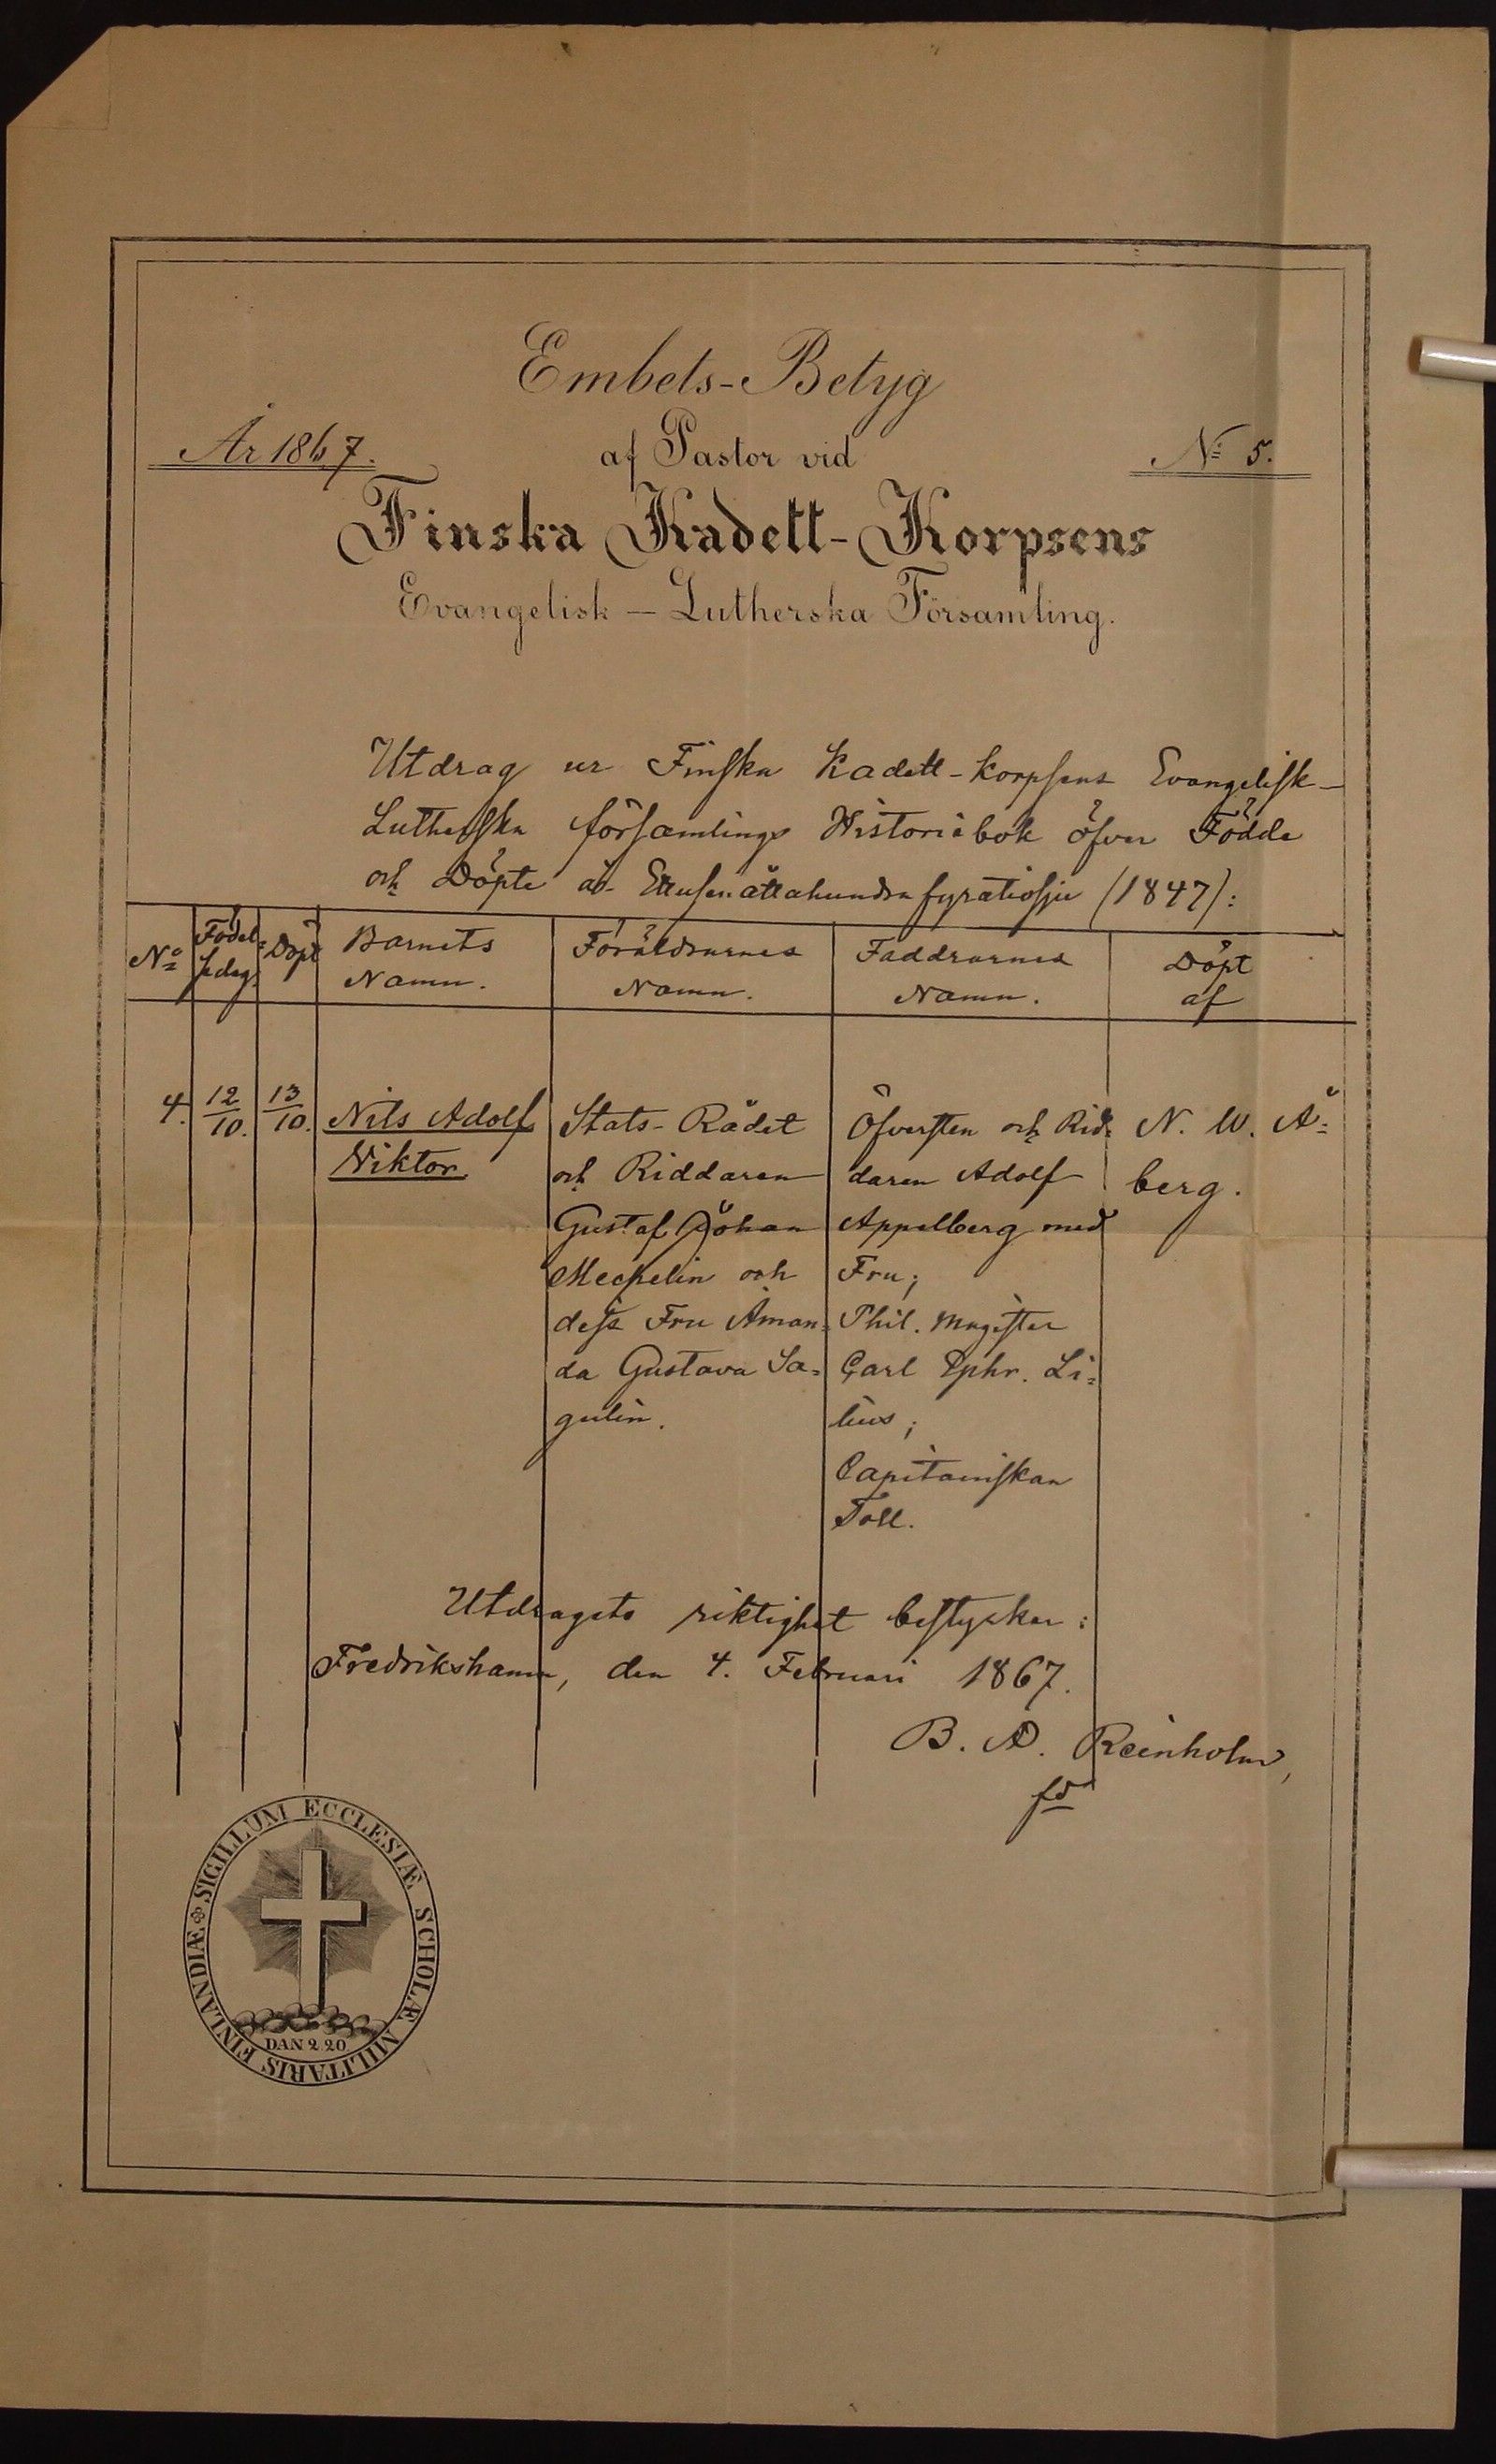 Embets-Betyg
År 1867.
af Pastor vid
No 5.
Finska Kadett-Korpsens
Evangelisk – Lutherska Församling.
Utdrag ur Finska Kadett-Korpsens Evangelisk-
Lutherska församlings Historiebok öfver Födde
och Döpte år Ettusenåttahundrafyratiosju (1847):
No
Födel-
sedag.
Döpt
Barnets
Namn.
Föräldrarnes
Namn.
Faddrarnes
Namn.
Döpt
af
4.
12/10.
13/10.
Nils Adolf
Viktor.
Stats-Rådet
och Riddaren
Gustaf Johan
Mechelin och
dess Fru Aman=
da Gustava Sa=
gulin.
Öfversten och Rid=
daren Adolf
Appelberg med
Fru;
Phil. Magister
Carl Ephr. Li=
lius;
Capitainskan
Toll.
N. W. Å=
berg.
Utdragets riktighet bestyrker:
Fredrikshamn, den 4. Februari 1867.
B. A. Reinholm,
SIGILLUM ECCLESIÆ SCHOLÆ MILITARIS FINLANDIÆ
DAN 2,20